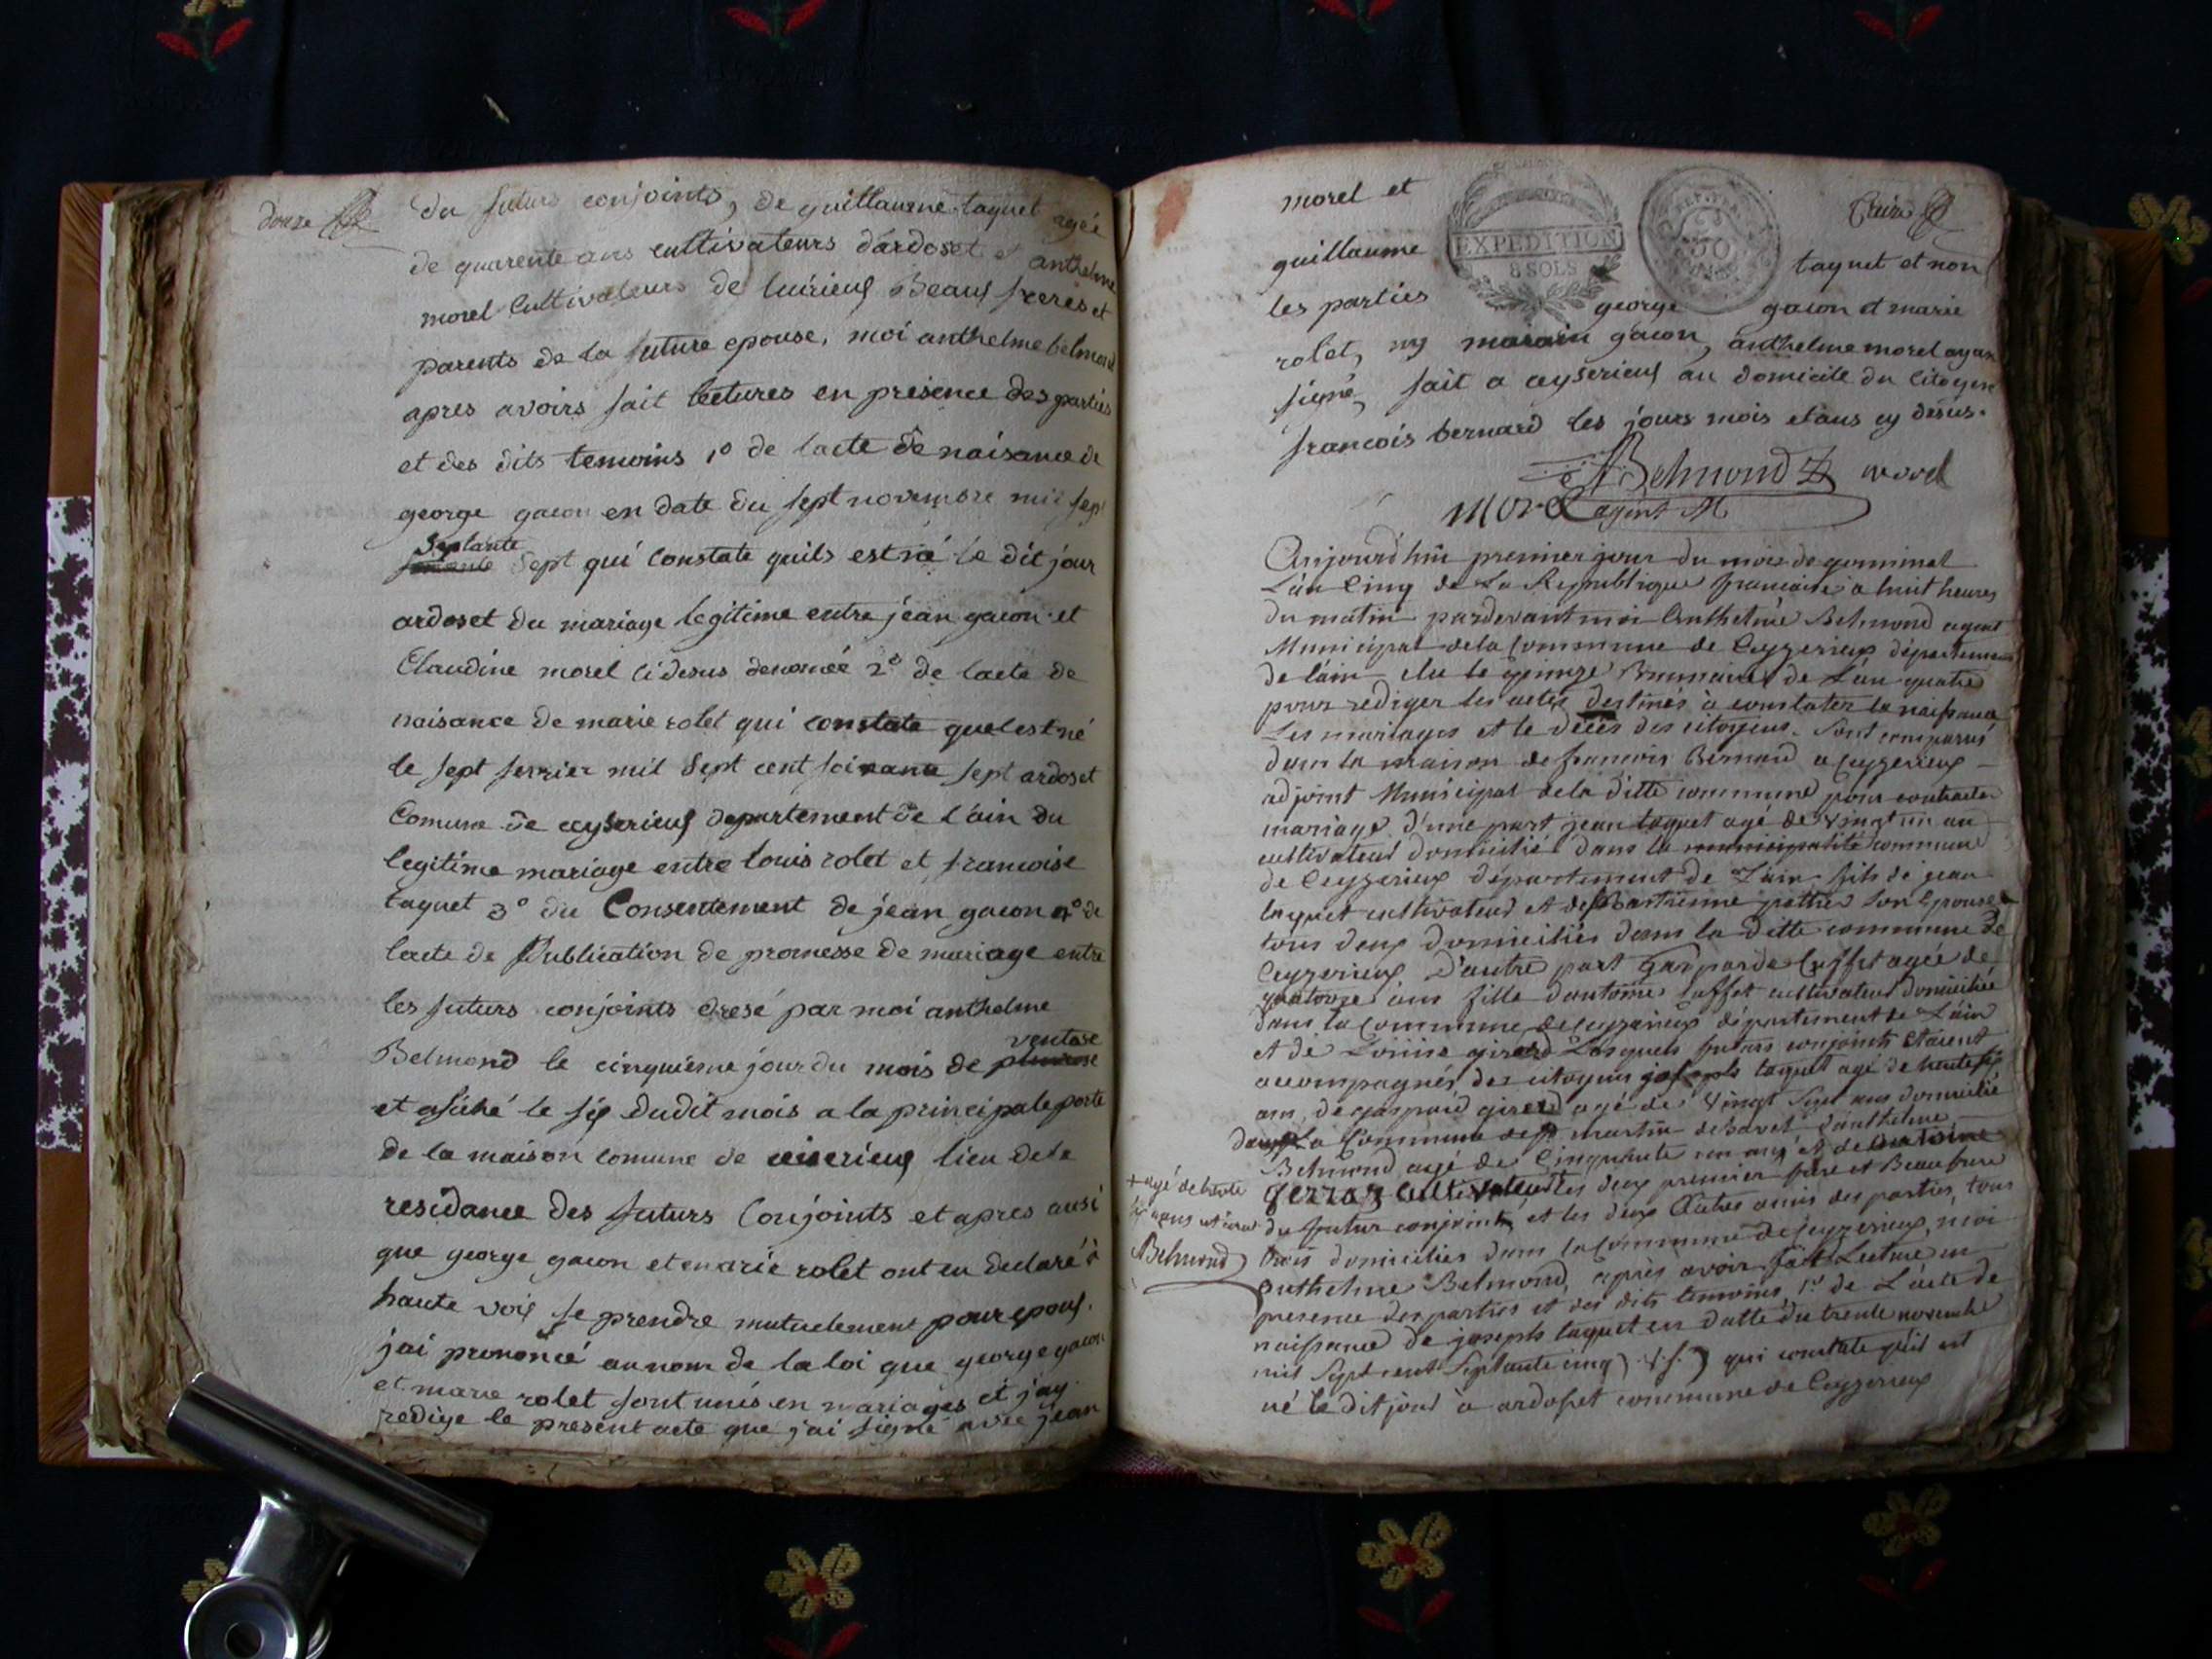 douze
du futurs conjoints, de guillaume taquet agée
de quarente ans cultivateurs d'ardoset et anthelme
morel Cultivateurs de luirieuf Beauf freres et
parents de la future epouse, moi anthelme belmond
apres avoirs fait lectures en présence des partiés
et des dits temoins 1º de lacte de naisance de
george gacon en date du sept novembre mil sept
septante
sept qui constate quils est né le dit jour
ardoset du mariage legitime entre jéan gacon et
Claudine morel ci desus denomée 2º de lacte de
naisance de marie rolet qui constate quelest né
le sept fevrier mil sept cent soixante sept ardoset
Comune de ceyserieuf departement de l'ain du
legitime mariage entre louis rolet et francoise
taquet 3º du Consentement de jéan gacon 4º de
lacte de Publication de promesse de mariage entre
les futurs conjoints dresé par moi anthelme
ventose
Belmond le cinquiéme jour du mois de pluviose
et afiché le six dudit mois a la principale porte
de la maison comune de ceiserieuf lieu de la
residance des futurs Conjoints et apres ausi
que george gacon et marie rolet ont eu declaré à
haute voix se prendre mutuelement pour epoux.
j'ai prononcé au nom de la loi que george gacon
et marie rolet sont unis en mariages et j'ay
redige le present acte que j'ai signé avec jean
morel et
guillaume taquet et non
les parties george gacon et marie
rolet, ny gacon, anthelme morel ayant
signé, fait a ceyserieuf au domicile du Citoyen
francois bernard les jours mois et ans cy desus.
ABelmond morel
morel agent M
EXPEDITION
8 SOLS
50
Aujourd'hui premier jour du mois de germinal
L'an Cinq de La Republique francaise a huit heures
du matin pardevant moi Anthelme Belmond agent
Municipal de la Commune de Ceyzerieux département
de l'ain elu le quinze Brumaire de L'an quatre
pour rediger les actes destinés à constater la naissance
Les mariages et le déces des citoyens. Sont comparus
dans la maison de francois Bernard a Ceyzerieux
adjoint Municipal de la ditte commune pour contracter
mariage d'une part jean taquet agé de vingt un an
cultivateur domicilié dans la municipalité commune
de Ceyzerieux département de L'ain fils de jean
taquet cultivateur et de son Epouse
tous deux domiciliés dans la ditte commune de
Ceyzerieux D'autre part Gasparde agée de
quatorze ans fille d'antoine cultivateur domicilié
dans la Commune de Ceyzerieux département de L'ain
et de Louise girerd Lesquels futurs conjoints etaient
accompagnés des citoyens joseph taquet agé de trente six
ans, de gaspard girerd agé de vingt sept ans domicilié
dans La Commune de St martin de Bavel d'anthelme
Belmond agé de Cinquante un ans et de antoine
+ agé de trente
ferraz cultivateur les deux premier frere et Beaufrere
du futur conjoint et les deux Autres amis des parties, tous
Belmond
trois domiciliés dans la Commune de Ceyzerieux, moi
Anthelme Belmond, apres avoir fait Lecture en
presence des parties et des dits temoins 1º de L'acte de
naissance de joseph taquet en datte du trente novembre
mil sept cent septante cinq (v.s.) qui constate qu'il est
né le dit jour à ardoset commune de Ceyzerieux